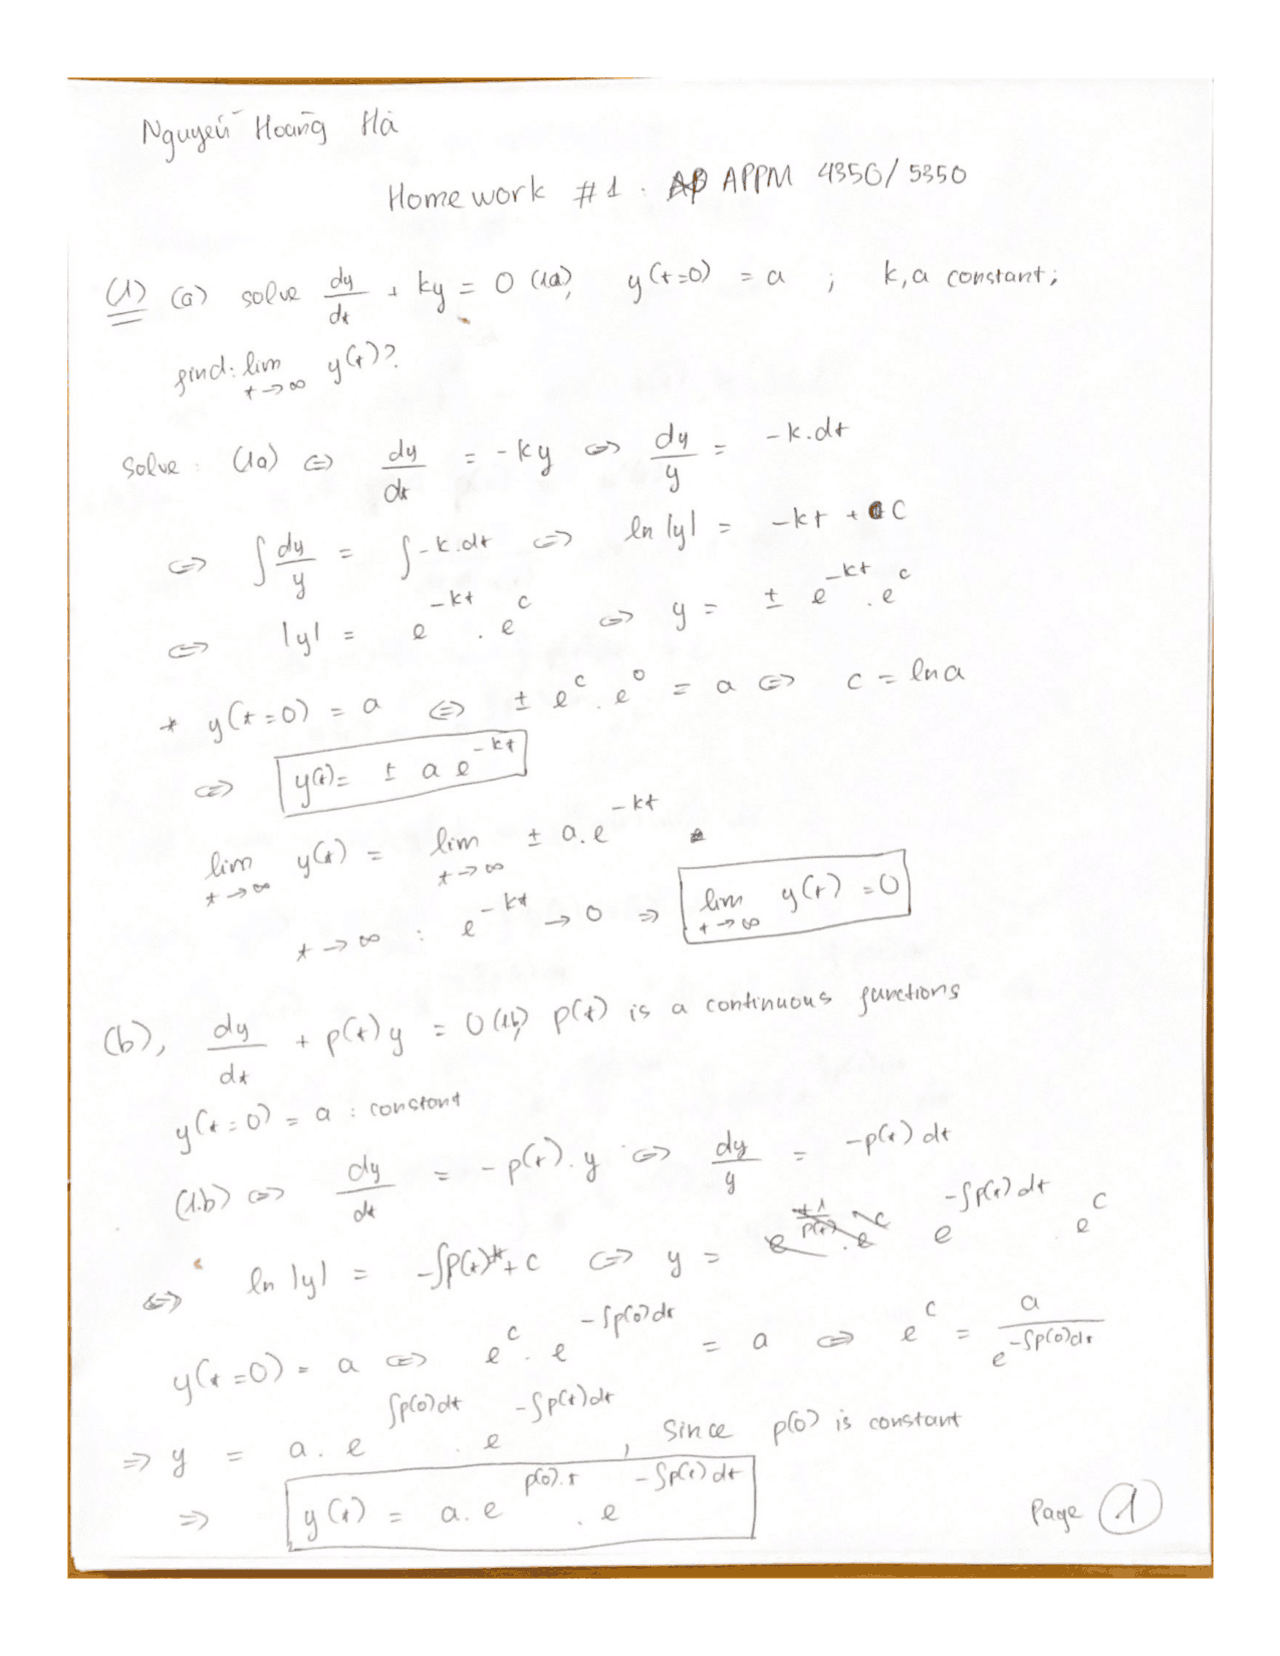 Nguyễn Hoàng Hà
Homework #1. APPM 4350/5350
(1) (a) solve dy/dt + ky = 0 (1a), y(t=0) = a ; k, a constant;
find: lim t→∞ y(t)?
Solve: (1a) ⇔ dy/dt = -ky ⇔ dy/y = -k.dt
⇔ ∫ dy/y = ∫ -k.dt ⇔ ln |y| = -kt + C
⇔ |y| = e^{-kt} . e^c ⇔ y = ± e^{-kt} . e^c
* y(t=0) = a ⇔ ± e^c . e^0 = a ⇔ c = ln a
⇔ y(t) = ± a e^{-kt}
lim t→∞ y(t) = lim t→∞ ± a.e^{-kt}
t→∞ : e^{-kt} → 0 ⇒ lim t→∞ y(t) = 0
(b), dy/dt + p(t)y = 0 (1b) p(t) is a continuous functions
y(t=0) = a : constant
(1.b) ⇔ dy/dt = -p(t).y ⇔ dy/y = -p(t) dt
⇔ ln |y| = -∫p(t)dt + c ⇔ y = e^{-∫p(t)dt} . e^c
y(t=0) = a ⇔ e^c . e^{-∫p(0)dt} = a ⇔ e^c = a / e^{-∫p(0)dt}
⇒ y = a . e^{∫p(0)dt} . e^{-∫p(t)dt}, Since p(0) is constant
⇒ y(t) = a . e^{p(0).t} . e^{-∫p(t)dt}
Page 1